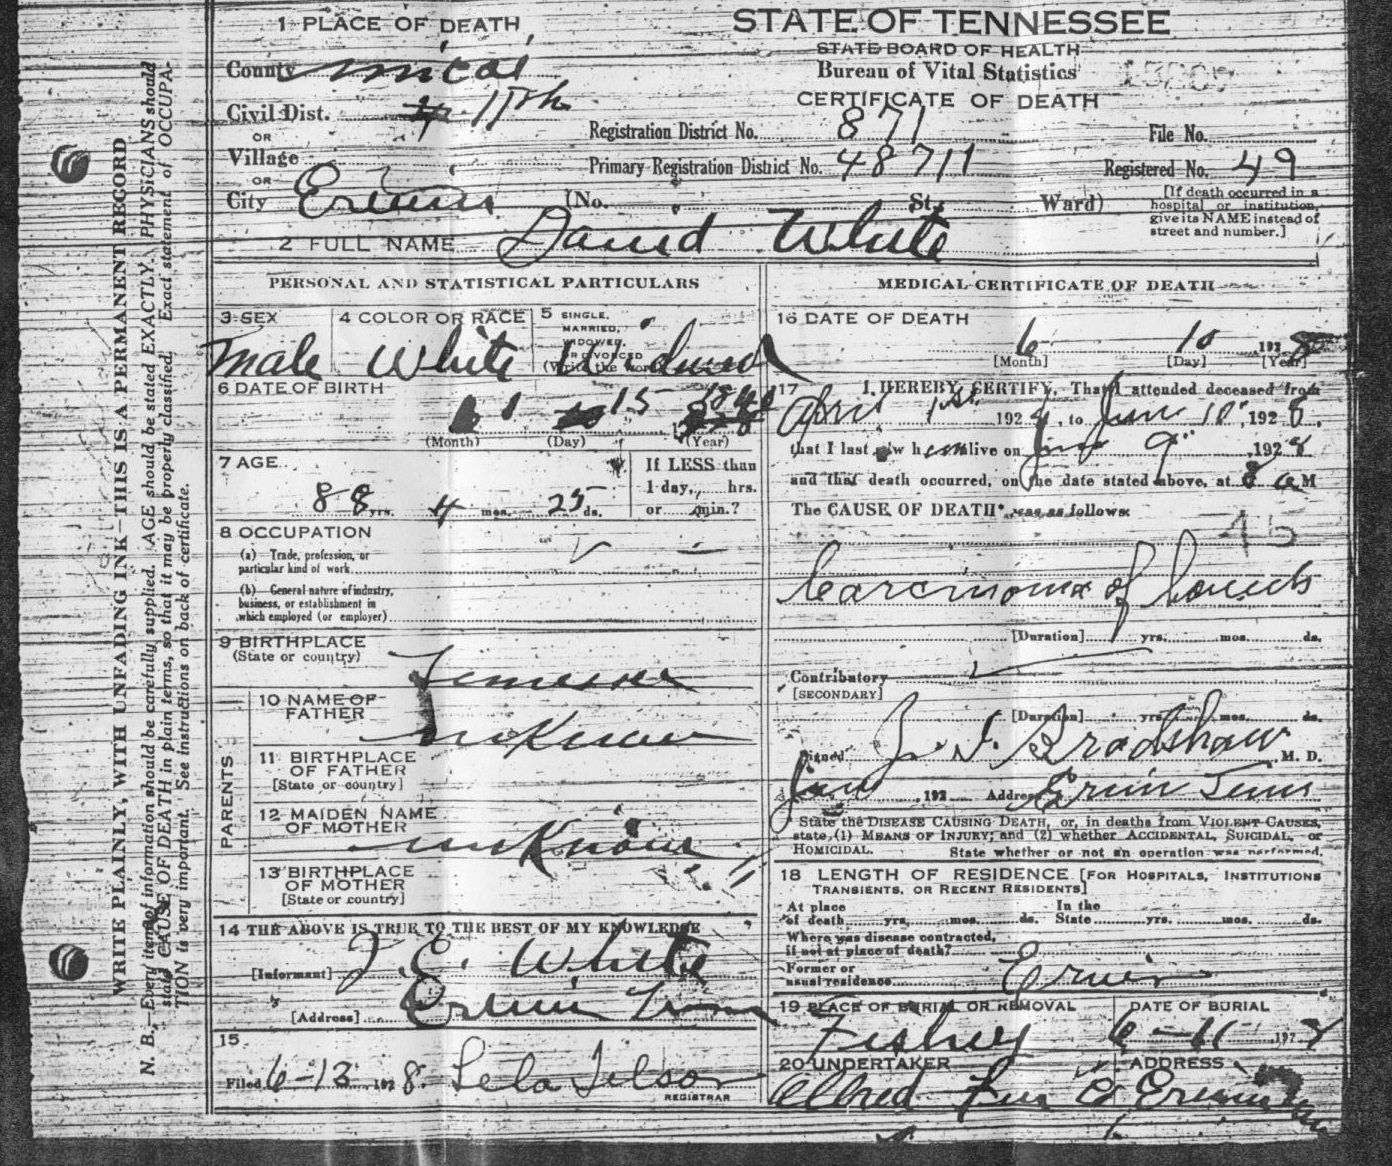 STATE OF TENNESSEE
STATE BOARD OF HEALTH
Bureau of Vital Statistics
CERTIFICATE OF DEATH
1 PLACE OF DEATH
County Unicoi
Civil Dist. 4 15th
OR
Village
OR
City Erwin (No. St. Ward)
Registration District No. 871
File No.
Primary Registration District No. 48711
Registered No. 49
[If death occurred in a
hospital or institution,
give its NAME instead of
street and number.]
2 FULL NAME David White
PERSONAL AND STATISTICAL PARTICULARS
3 SEX
Male
4 COLOR OR RACE
White
5 SINGLE,
MARRIED,
WIDOWED,
OR DIVORCED
(Write the word)
Widowed
6 DATE OF BIRTH
15
(Month) (Day) (Year)
7 AGE
88 yrs. 4 mos. 25 ds.
If LESS than
1 day, hrs.
or min.?
8 OCCUPATION
(a) Trade, profession, or
particular kind of work
(b) General nature of industry,
business, or establishment in
which employed (or employer)
9 BIRTHPLACE
(State or country)
Tennessee
PARENTS
10 NAME OF
FATHER
unKnown
11 BIRTHPLACE
OF FATHER
[State or country]
12 MAIDEN NAME
OF MOTHER
unKnown
13 BIRTHPLACE
OF MOTHER
[State or country]
"
14 THE ABOVE IS TRUE TO THE BEST OF MY KNOWLEDGE
[Informant] J. E. White
[Address] Erwin Tenn
15
Filed 6-13 1928. Lela Tilson
REGISTRAR
MEDICAL CERTIFICATE OF DEATH
16 DATE OF DEATH
6 10 1928
[Month] [Day] [Year]
17 I HEREBY CERTIFY, That I attended deceased from
April 1st 192 , to June 10, 1928,
that I last saw him alive on June 9, 1928
and that death occurred, on the date stated above, at 8 a M
The CAUSE OF DEATH* was as follows:
45
Carcinoma of bowels
[Duration] yrs. mos. ds.
Contributory
[SECONDARY]
[Duration] yrs. mos. ds.
Signed Bradshaw M. D.
June , 192 Address Erwin Tenn
State the DISEASE CAUSING DEATH, or, in deaths from VIOLENT CAUSES,
state (1) MEANS OF INJURY; and (2) whether ACCIDENTAL, SUICIDAL, or
HOMICIDAL. State whether or not an operation was performed.
18 LENGTH OF RESIDENCE [FOR HOSPITALS, INSTITUTIONS
TRANSIENTS, OR RECENT RESIDENTS]
At place
of death yrs. mos. ds.
In the
State yrs. mos. ds.
Where was disease contracted,
if not at place of death?
Former or
usual residence Erwin
19 PLACE OF BURIAL OR REMOVAL
Fishery
DATE OF BURIAL
6-11 1928
20 UNDERTAKER
Co
ADDRESS
Erwin
WRITE PLAINLY, WITH UNFADING INK—THIS IS A PERMANENT RECORD
N. B.—Every item of information should be carefully supplied. AGE should be stated EXACTLY. PHYSICIANS should
state CAUSE OF DEATH in plain terms, so that it may be properly classified. Exact statement of OCCUPA-
TION is very important. See instructions on back of certificate.